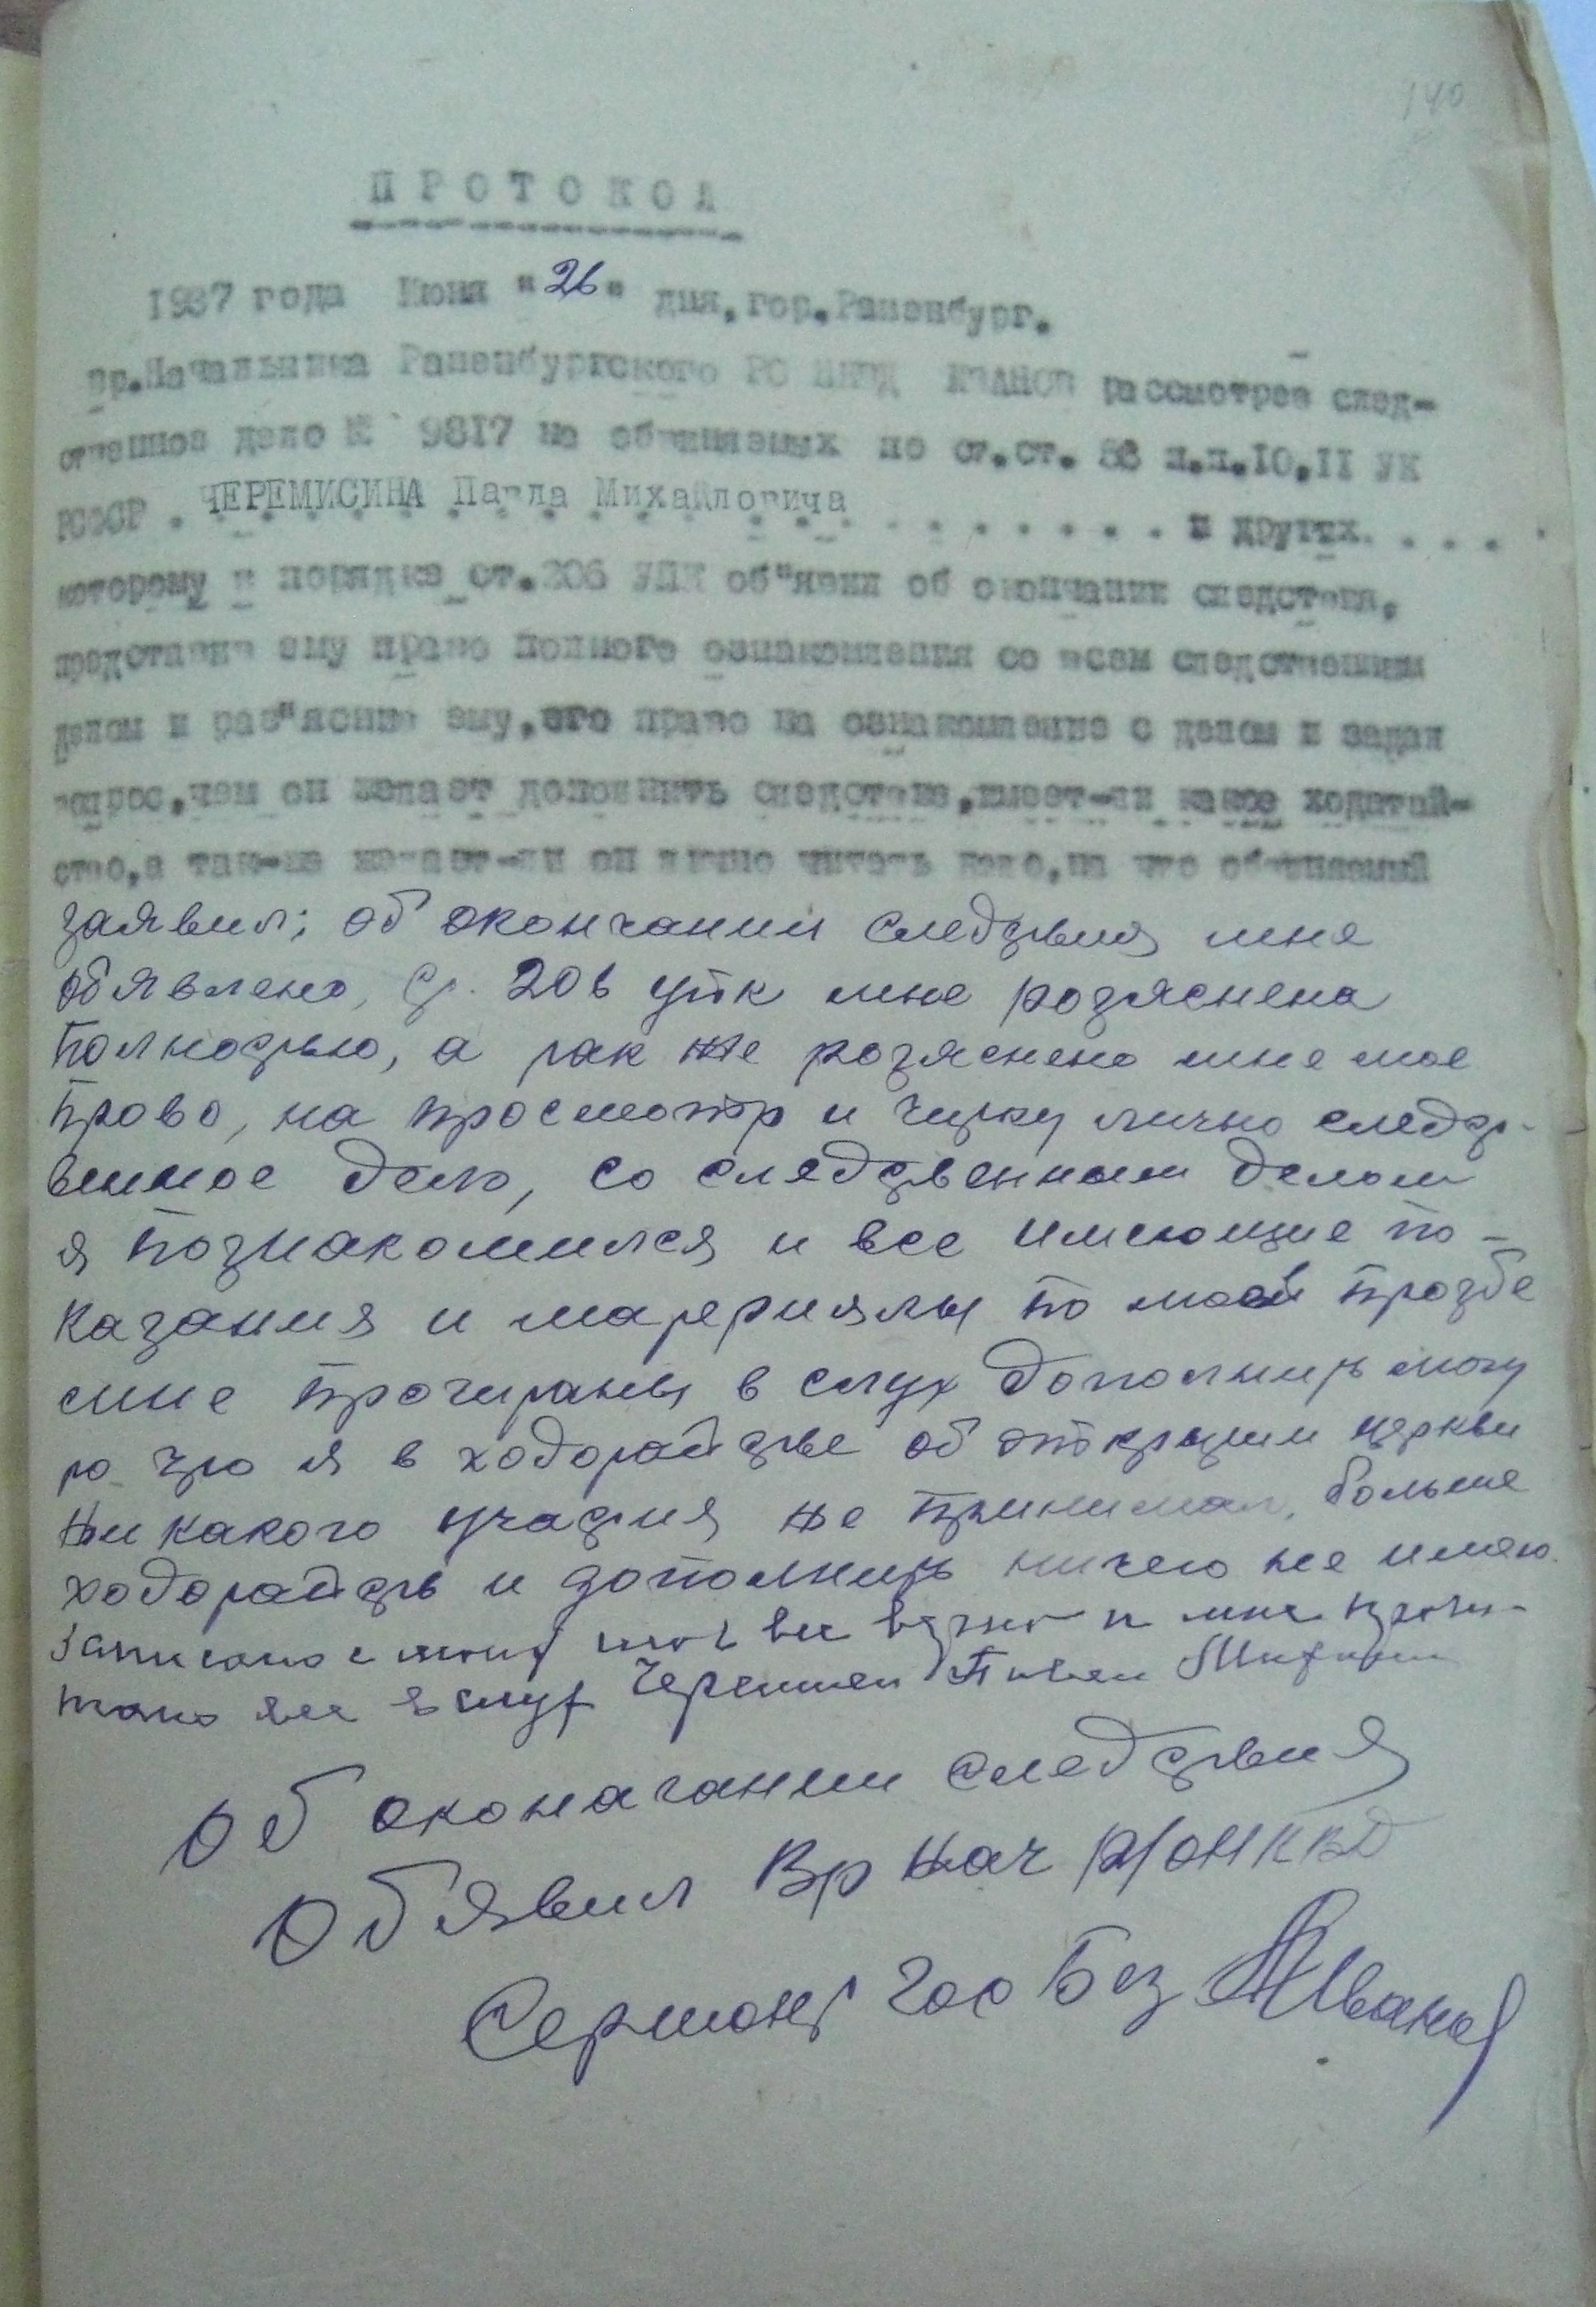 140
ПРОТОКОЛ
1937 года Июня "26" дня, гор. Раненбург.
Вр.Начальника Раненбургского РО НКВД ИВАНОВ рассмотрев след-
ственное дело № 9817 по обвинению по ст.ст. 58 п.п.10,11 УК
РСФСР . ЧЕРЕМИСИНА Павла Михайловича . . . . . . и других. . . .
которому в порядке ст.206 УПК об"явил об окончании следствия,
представив ему право полного ознакомления со всем следственным
делом и раз"яснив ему,его право на ознакомление с делом и задав
вопрос,чем он желает дополнить следствие,имеет-ли какое ходатай-
ство,а так-же желает-ли он лично читать дело,на что обвиняемый
заявил; об окончании следствия мне
обявлено, ст. 206 упк мне розяснена
Полностью, а так же розяснено мне мое
Право, на просмотр и читку лично следст-
венное дело, со следственным делом
я познакомился и все имеющие по-
казания и материялы по моей прозбе
мне прочитаны в слух дополнить могу
то что я в ходотайстве об открытии церкви
Ни какого участия не принимал, больше
ходотайств и дополнить ничего не имею.
Записано с моих слов все верно и мне прочи-
тано все вслух Черемисин Павел Михайл
Об оконачании следствия
Обявил Вр Нач Р/О НКВД
Сержант Гос Без Иванов